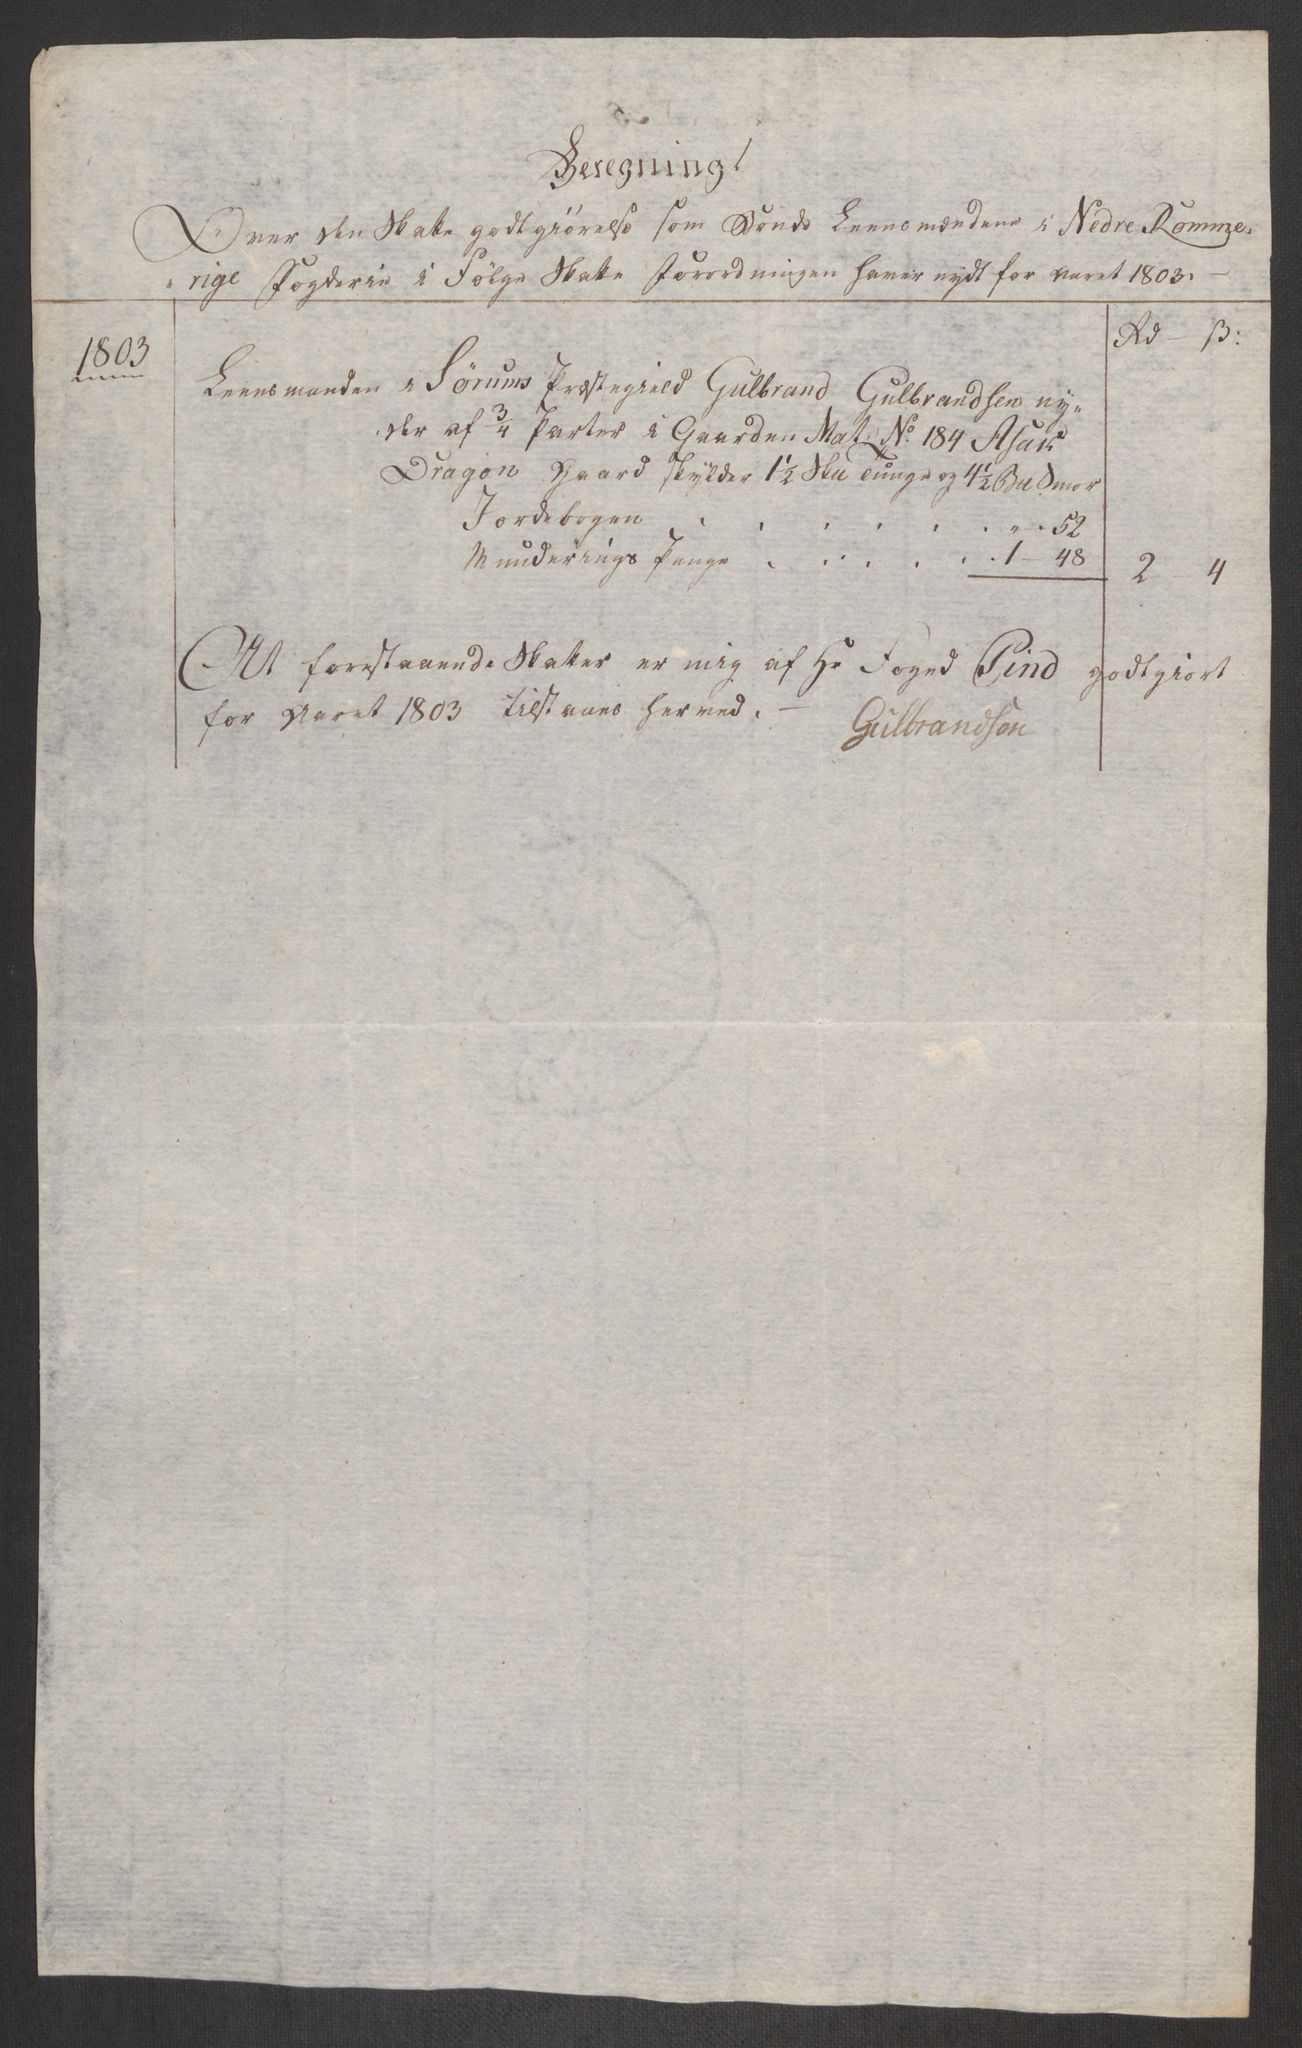 Beregning!
Over den Skatte godtgiörelse som Bonde Leensmændene i Nedre Romme-
rige Fogderie i Fölge Skatte Forordningen haver nydt for aaret 1803. —
Rd — ß:
1803
Leensmanden i Sörums Præstegield Gulbrand Gulbrandsen ny-
der af 3/4 Parter i Gaarden Mat. No. 184 Asak
Dragon Gaard skylder 1½ Sku Tunge og 4½ Bu Smör
Jordebogen . . . . . . „ . 52
Munderings Penge . . . . . . 1 — 48
2 — 4
At forestaaende Skatter er mig af Hr Foged Pind godtgiort
for Aaret 1803 tilstaaes herved. —
Gulbrandsen